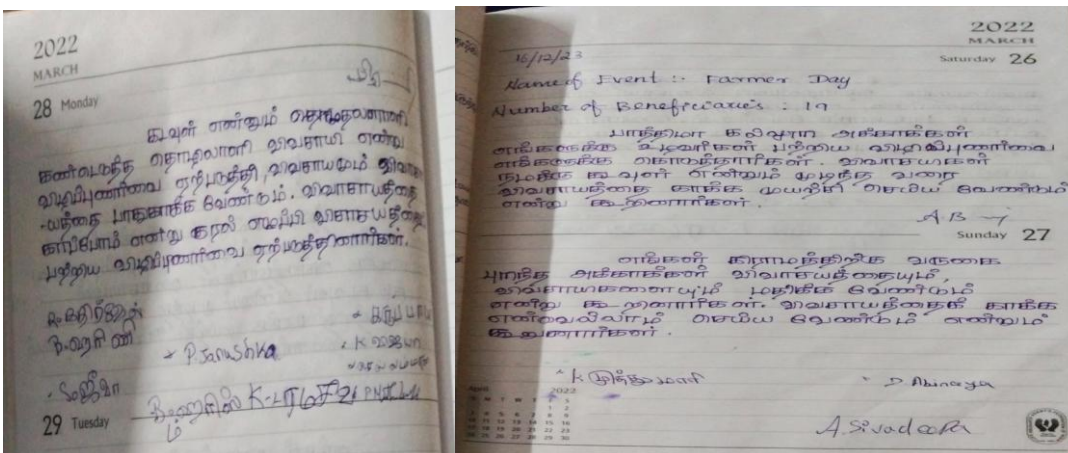 2022
MARCH
28 Monday
கடவுள் என்னும் தொழுதவளானி
கண்டெடுத்த தொழிலாளி விவசாயி என்று
விழிப்புணர்வை ஏற்படுத்தி, விவசாயமும் விவசா
-யத்தை பாதுகாக்க வேண்டும். விவசாயத்தை
காப்போம் என்று குரல் எழுப்பி விவசாயத்தை
பற்றிய விழிப்புணர்வை ஏற்படுத்தினார்கள்.
B. ஹரிணி
P. Janushka
சஞ்சீவி
29 Tuesday
2022
MARCH
Saturday 26
16/12/23
Name of Event :- Farmer Day
Number of Beneficiaries : 19
பாத்திமா கல்லூரி அக்காக்கள்
எங்களுக்கு உழவர்கள் பற்றிய விழிப்புணர்வை
எங்களுக்கு கொடுத்தார்கள். விவசாயிகள்
நமக்கு கடவுள் என்றும் முடிந்த வரை
விவசாயத்தை காக்க முயற்சி செய்ய வேண்டும்
என்று கூறினார்கள்.
Sunday 27
எங்கள் கிராமத்திற்கு வருகை
புரிந்த அக்காக்கள் விவசாயத்தையும்,
விவசாயிகளையும் மதிக்க வேண்டும்
என்று கூறினார்கள். விவசாயத்தைக் காக்க
என்னவெல்லாம் செய்ய வேண்டும் என்றும்
கூறினார்கள்.
K முத்துமாரி
D. Abinaya
A. Sivadeepa
April 2022